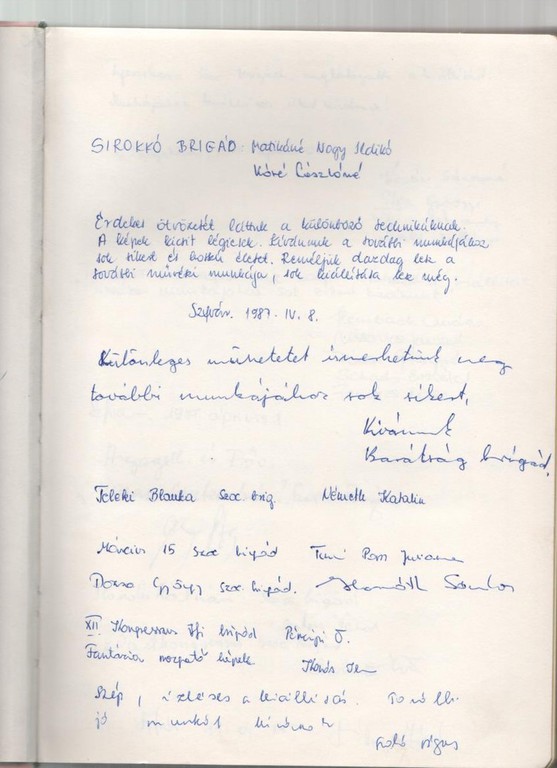 SIROKKÓ BRIGÁD: Matikáné Nagy Ildikó
Kóré Lászlóné
Érdekes ötvözetét láttuk a különböző technikáknak.
A képek kicsit légiesek. Kívánunk a további munkájához
sok sikert és hosszú életet. Reméljük gazdag lesz a
további művészi munkája, sok kiállítása lesz még.
Szfvár. 1987. IV. 8.
Különleges műhetetet ismerhetünk meg
további munkájához sok sikert,
Kívánunk
Barátság brigád.
Teleki Blanka szoc brig. Németh Katalin
Március 15 szoc brigád
Dózsa György szoc. brigád. Sándor
XII. Kongresszus Ifj brigád
Fantázia mozgató képek
Szép, ízléses a kiállítás. További
jó munkát kívánok